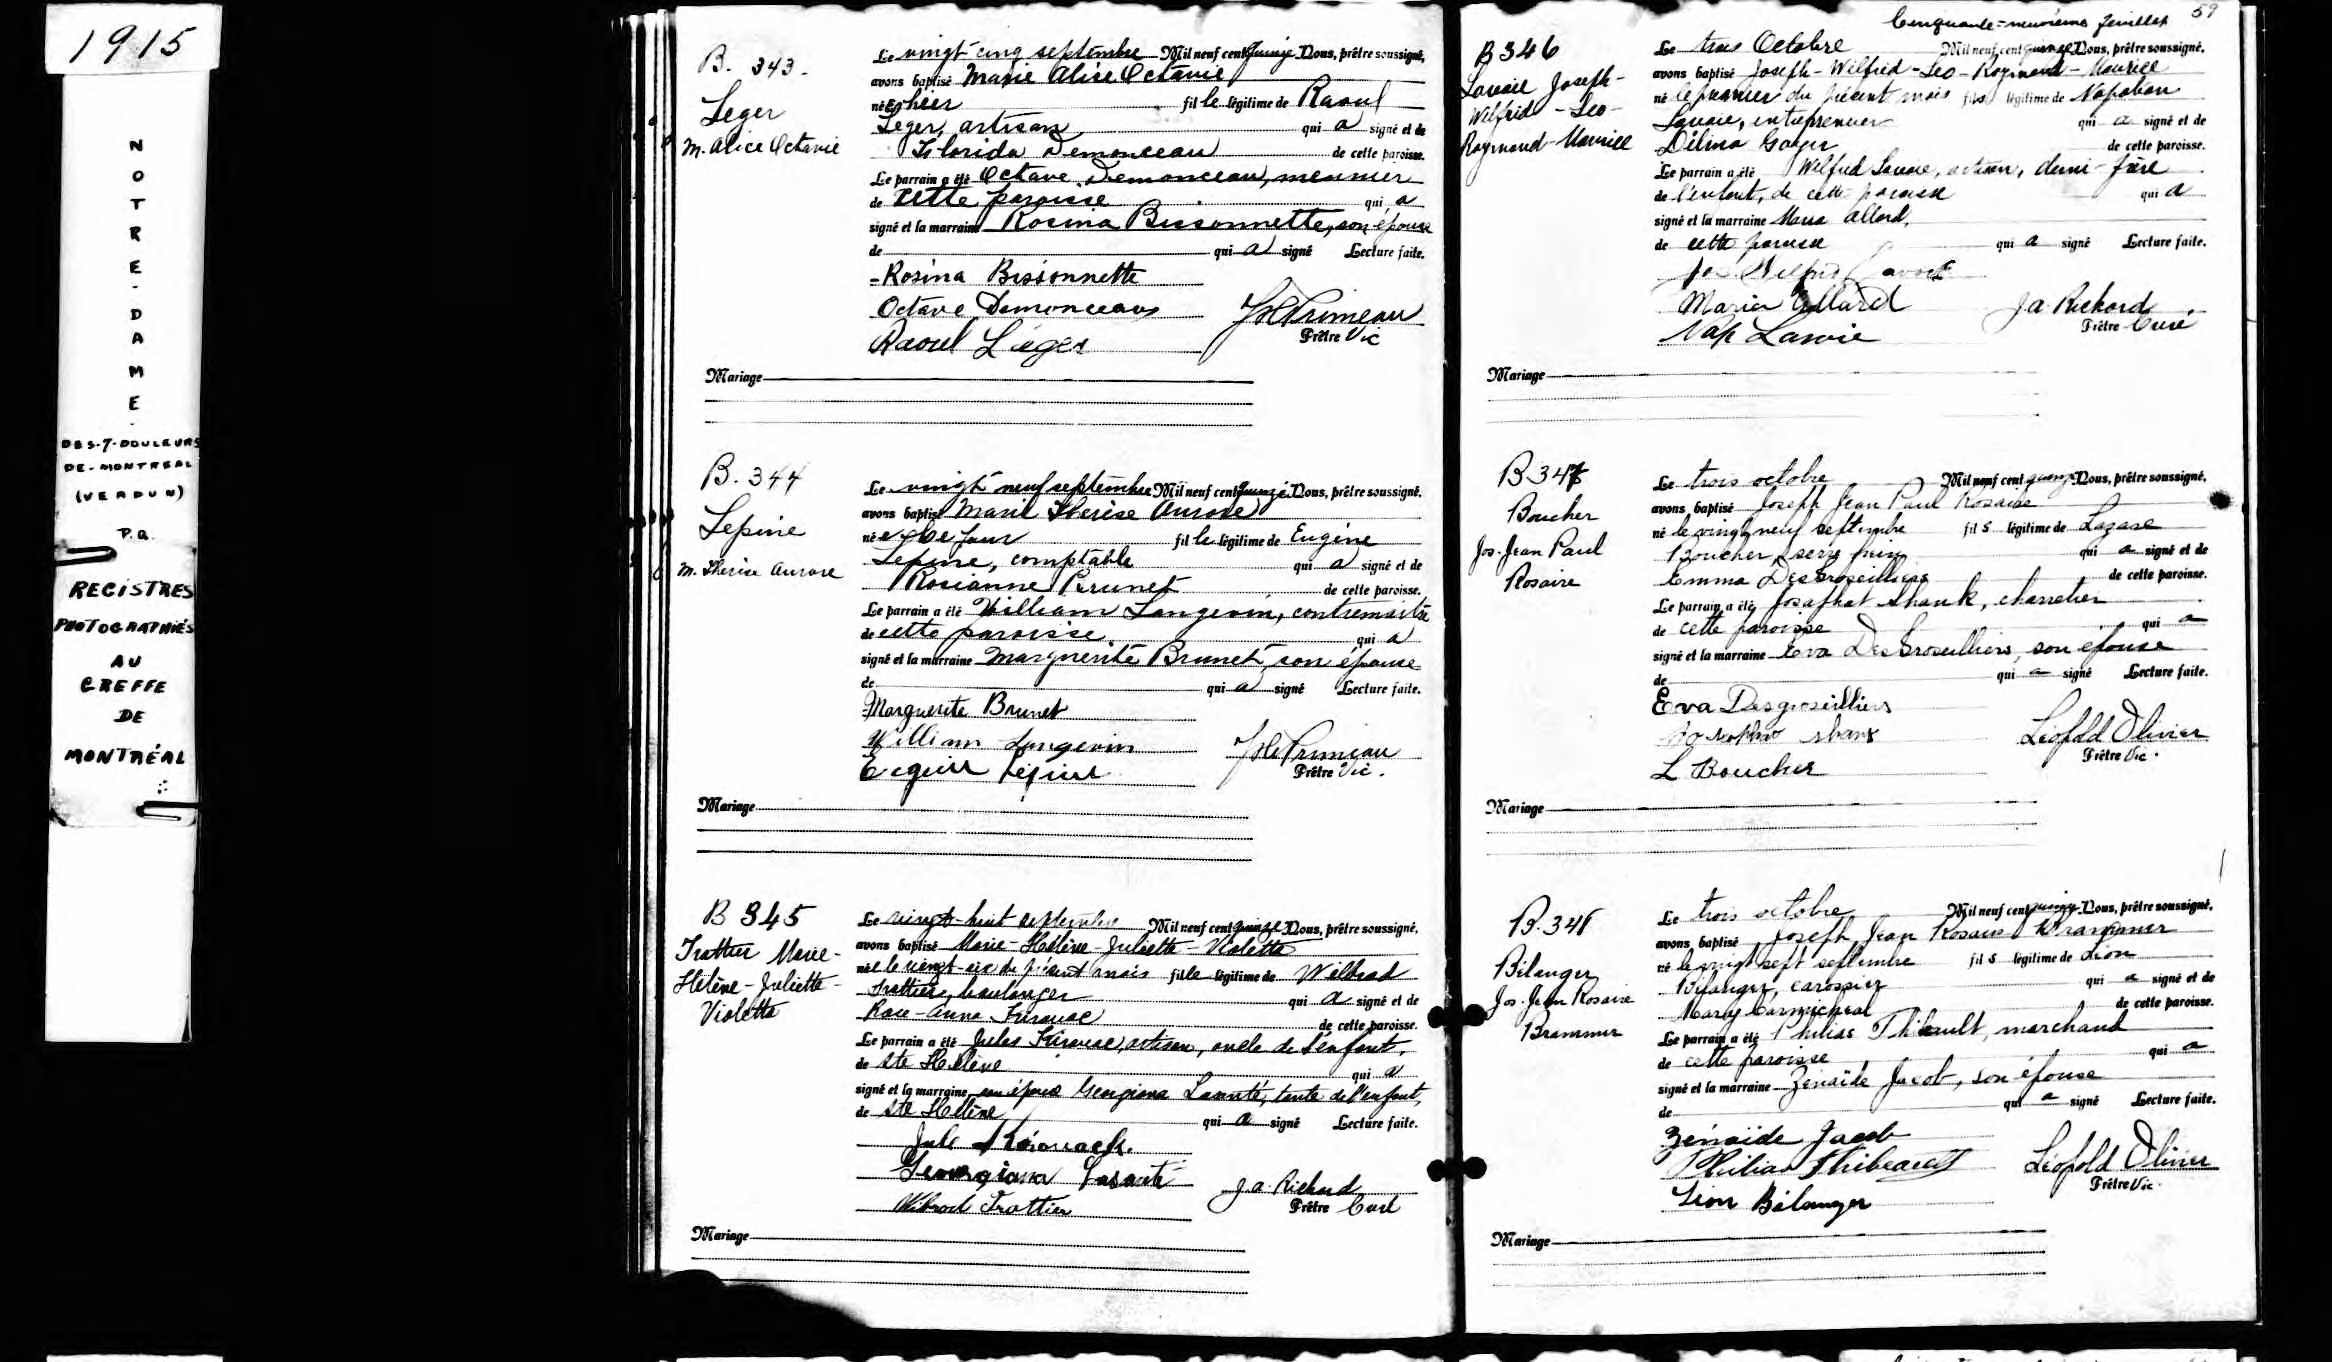 1915
NOTRE-DAME-
DES-7-DOULEURS
DE-MONTREAL
(VERDUN)
P.Q.
REGISTRES
PHOTOGRAPHIÉS
AU
GREFFE
DE
MONTRÉAL
B. 343.
Leger
M. Alice Octavie
Le vingt cinq septembre Mil neuf cent quinze Nous, prêtre soussigné,
avons baptisé Marie Alice Octavie
née hier fille légitime de Raoul
Leger, artisan qui a signé et de
Florida Demonceau de cette paroisse.
Le parrain a été Octave Demonceau, meunier
de cette paroisse qui a
signé et la marraine Rosina Bissonnette, son épouse
de qui a signé Lecture faite.
Rosina Bissonnette
Octave Demonceaux
Raoul Léger
Primeau
Prêtre Vic
Mariage
B. 344
Lepine
M. Thérèse Aurore
Le vingt neuf septembre Mil neuf cent quinze Nous, prêtre soussigné,
avons baptisé Marie Thérèse Aurore
née ce jour fille légitime de Eugène
Lepine, comptable qui a signé et de
Rosianne Brunet de cette paroisse.
Le parrain a été William Langevin, contremaître
de cette paroisse qui a
signé et la marraine Marguerite Brunet, son épouse
de qui a signé Lecture faite.
Marguerite Brunet
William Langevin
Primeau
Prêtre Vic.
Mariage
B 345
Trottier Marie-
Hélène-Juliette-
Violette
Le vingt-huit septembre Mil neuf cent quinze Nous, prêtre soussigné,
avons baptisé Marie-Hélène-Juliette-Violette
née le vingt-six du présent mois fille légitime de Wilbrod
Trottier, boulanger qui a signé et de
Rose-Anna de cette paroisse.
Le parrain a été Jules artisan, oncle de l'enfant,
de Ste Hélène qui a
signé et la marraine son épouse Georgiana Lasanté, tante de l'enfant,
de Ste Hélène qui a signé Lecture faite.
Georgiana Lasanté
Wibrod Trottier
J. A. Richard
Prêtre Curé
Mariage
Cinquante-neuvième feuillet 59
B 346
Lavoie Joseph-
Wilfrid-Leo-
Raymond-Maurice
Le trois Octobre Mil neuf cent quinze Nous, prêtre soussigné,
avons baptisé Joseph-Wilfrid-Leo-Raymond-Maurice
né le premier du présent mois fils légitime de Napoléon
Lavoie, entrepreneur qui a signé et de
Délima de cette paroisse.
Le parrain a été Wilfrid Lavoie, artisan, demi-frère
de l'enfant, de cette paroisse qui a
signé et la marraine Maria Allard,
de cette paroisse qui a signé Lecture faite.
Wilfrid Lavoie
Maria Allard
Nap Lavoie
J. A. Richard
Prêtre Curé
Mariage
B 347
Boucher
Jos. Jean Paul
Rosaire
Le trois octobre Mil neuf cent quinze Nous, prêtre soussigné,
avons baptisé Joseph Jean Paul Rosaire
né le vingt neuf septembre fils légitime de Lazare
Boucher qui a signé et de
Emma Desgroseilliers de cette paroisse.
Le parrain a été Josaphat Shank, charretier
de cette paroisse qui a
signé et la marraine Eva Desgroseilliers, son épouse
de qui a signé Lecture faite.
Eva Desgroseilliers
L Boucher
Léopold Olivier
Prêtre Vic.
Mariage
B. 348
Bélanger
Jos. Jean Rosaire
Brammer
Le trois octobre Mil neuf cent quinze Nous, prêtre soussigné,
avons baptisé Joseph Jean Rosaire Brammer
né le vingt sept septembre fils légitime de Léon
Bélanger, carossier qui a signé et de
Mary Carmichael de cette paroisse.
Le parrain a été Philias Thibault, marchand
de cette paroisse qui a
signé et la marraine Zénaïde Jacob, son épouse
de qui a signé Lecture faite.
Zénaide Jacob
Philias Thibeault
Léon Bélanger
Léopold Olivier
Prêtre Vic.
Mariage